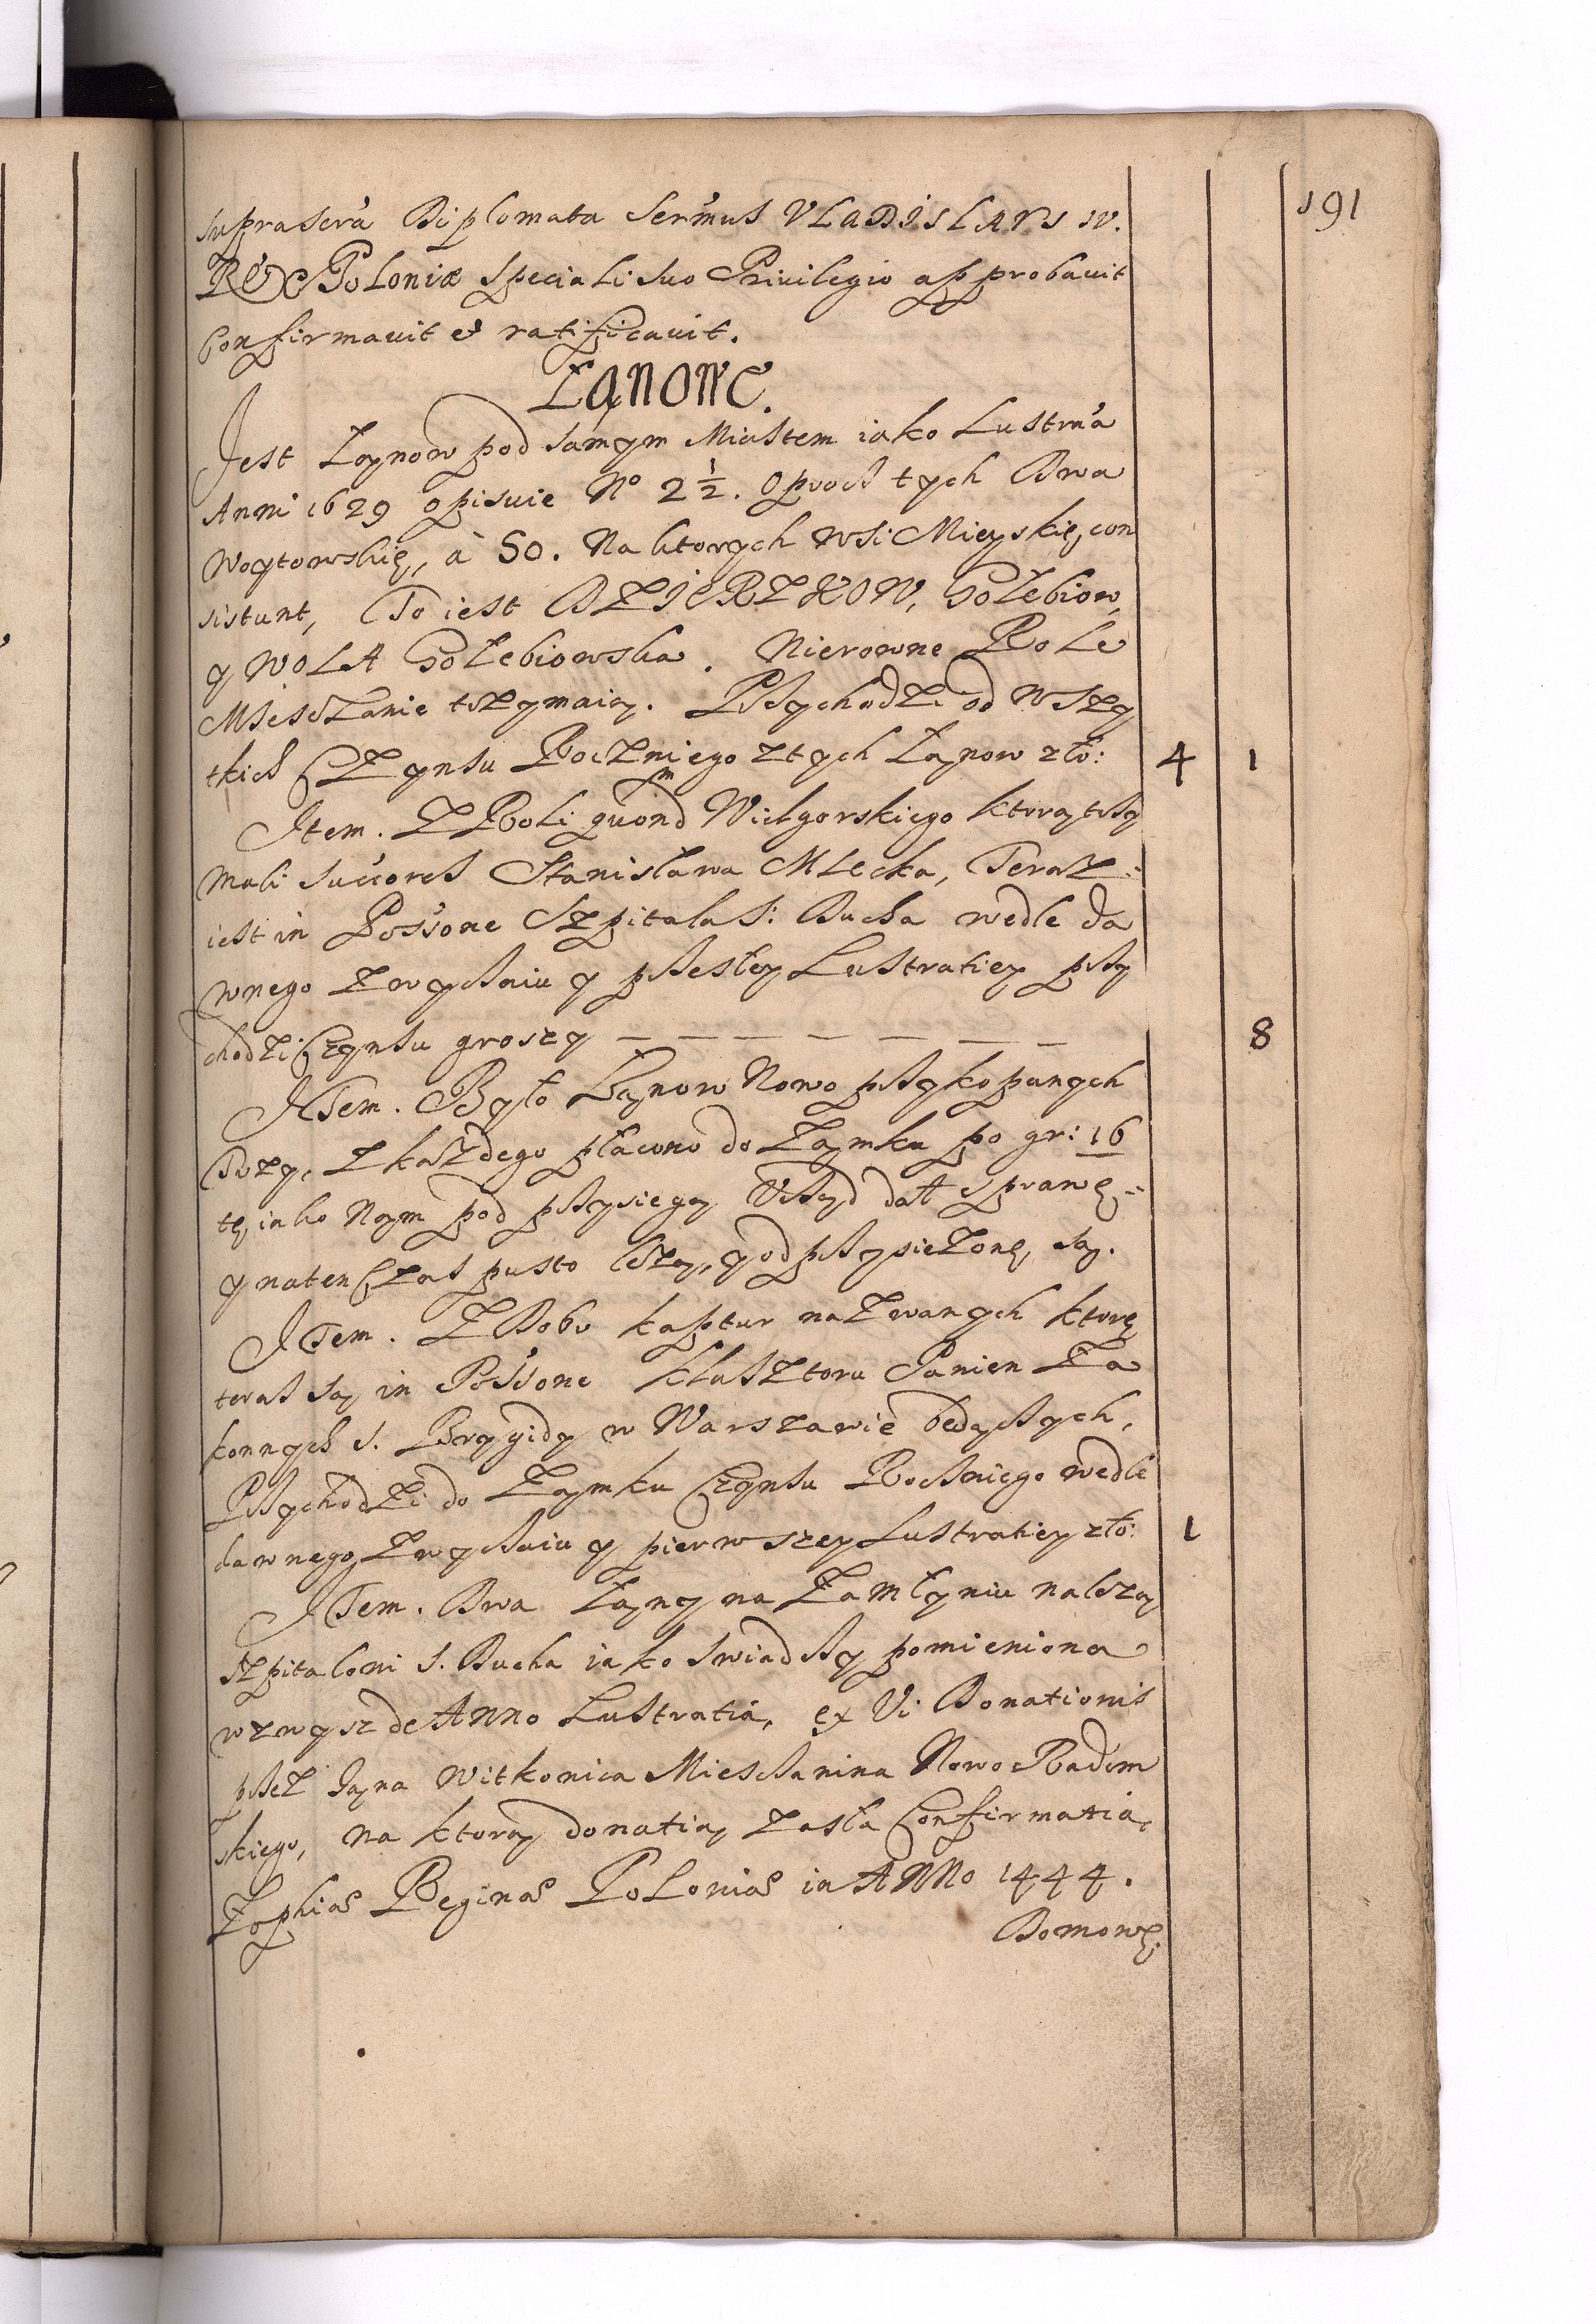 191
suprascra Diplomata Sermus VLADISLAVS IV.
REX Poloniæ speciali suo Priuilegio approbauit
Confirmauit et ratificauit.
Łąnowe.
Jest Łąnow pod samym Miastem iako Lustrna
Anni 1629 opisuie No 2½. Oprocz tych Dwa
Woytowskię, à 50. Na ktorych wsi Mieyskię con
sistunt, To iest DZIERZKOW, Gołebiow,
y WOLA Gołebiowska. Nierowne Role
Miesczanie trzymaią. Przychodzi od wszy
tkich Czynsu Roczniego z tych Łąnow zło: 4 1
Item. Z Roli quondm Wielgorskiego ktorą trzy
mali succores Stanisława Mlecka, Teraz
iest in Possone Szpitala S: Ducha wedle da
wnego zwyczaiu y przeszłey Lustratiey przy
chodzi Czynsu groszy — — — — — — — 8
Item. Było Łąnow Nowo przykopanych
Trzy, z każdego płacono do Zamku po gr: 16
tę, iako Nąm pod przysiegą Vrząd dał sprawę
y naten Czas pusto leżą, y odprzysieżonę są.
Item. Z Dobr kaptur nazwanych którę
teraz są in Possone Klasztoru Panien Za
konnych S. Brygidy w Warszawie bedączych,
Przychodzi do Zamku Czynsu Roczniego wedle
dawnego zwyczaiu y pierwszey Lustratiey zło: 1
Item. Dwa Łąny na Zamłyniu nalezą
szpitalowi S. Ducha iako swiadczy pomieniona
wzwysz de Anno Lustratia, ex Vi Donationis
przez Jąna Witkowica Miesczanina Nowo Radom
skiego, na ktorą donatią zaszła Confirmatia,
Zophiæ Reginæ Poloniæ in Anno 1444.
Domowę.